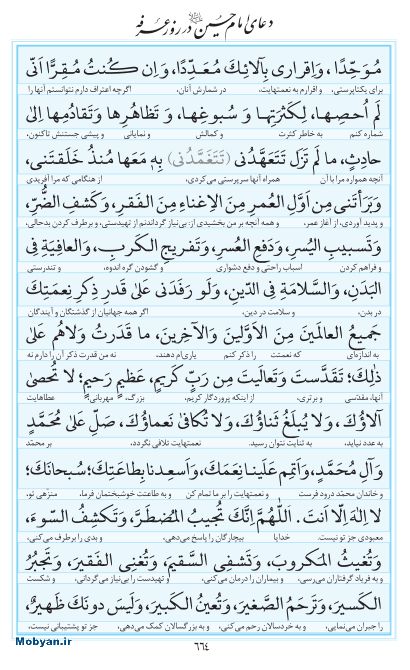 دعای امام حسین در روز عرفه
مُوَحِّدًا، وَاِقراری بِآلائِكَ مُعَدِّدًا، وَاِن كُنتُ مُقِرًّا اَنّی
برای یکتاپرستی، و اقرارم به نعمتهایت، در شمارش آنان، اگرچه اعتراف دارم نتوانستم آنها را
لَم اُحصِها، لِكَثرَتِها وَ سُبوغِها، وَ تَظاهُرِها وَتَقادُمِها اِلیٰ
شماره کنم به خاطر کثرت و کمالش و نمایانی و پیشی جستنش تاکنون،
حادِثٍ، ما لَم تَزَل تَتَعَهَّدُنی (تَتَغَمَّدُنی) بِهِ مَعَها مُنذُ خَلَقتَنی،
آنچه همواره مرا با آن همراه آنها سرپرستی می‌کردی، از هنگامی که مرا آفریدی
وَبَرَأتَنی مِن اَوَّلِ العُمرِ مِنَ الاِغناءِ مِنَ الفَقرِ، وَكَشفِ الضُّرِّ،
و پدید آوردی، از آغاز عمر، و همه آنچه بر من بخشیدی از: بی‌نیاز گرداندنم از تهیدستی، و برطرف کردن بدحالی،
وَتَسبیبِ الیُسرِ، وَدَفعِ العُسرِ، وَتَفریجِ الكَربِ، وَالعافِیَةِ فِی
و فراهم کردن اسباب راحتی و دفع دشواری و گشودن گره اندوه، و تندرستی
البَدَنِ، وَالسَّلامَةِ فِی الدّینِ، وَلَو رَفَدَنی عَلیٰ قَدرِ ذِكرِ نِعمَتِكَ
در بدن، و سلامت در دین، اگر همه جهانیان از گذشتگان و آیندگان
جَمیعُ العالَمینَ مِنَ الاَوَّلینَ وَالآخِرینَ، ما قَدَرتُ وَلاهُم عَلیٰ
به اندازه‌ای که نعمتت را ذکر کنم یاری‌ام دهند، نه من قدرت ذکر آن را دارم نه
ذٰلِكَ؛ تَقَدَّستَ وَتَعالَیتَ مِن رَبٍّ كَریمٍ، عَظیمٍ رَحیمٍ؛ لا تُحصیٰ
آنها، مقدّسی و برتری، از اینکه پروردگار کریم، بزرگ، مهربانی؛ عطاهایت
آلاؤُكَ، وَلا یُبلَغُ ثَناؤُكَ، وَلا تُكافیٰ نَعماؤُكَ، صَلِّ عَلیٰ مُحَمَّدٍ
به عدد نیاید، به ثنایت نتوان رسید. نعمتهایت تلافی نگردد. بر محمّد
وَآلِ مُحَمَّدٍ، وَاَتمِم عَلَینا نِعَمَكَ، وَاَسعِدنا بِطاعَتِكَ؛ سُبحانَكَ؛
و خاندان محمّد درود فرست و نعمتهایت را بر ما تمام کن و به طاعتت خوشبختمان فرما، منزّهی تو،
لا اِلهَ اِلّا اَنتَ. اَللّٰهُمَّ اِنَّكَ تُجیبُ المُضطَرَّ، وَتَكشِفُ السّوءَ،
معبودی جز تو نیست. خدایا بیچارگان را پاسخ می‌دهی، و بدی را برطرف می‌کنی،
وَتُغیثُ المَكروبَ، وَتَشفِی السَّقیمَ، وَتُغنِی الفَقیرَ، وَتَجبُرُ
و به فریاد گرفتاران می‌رسی، و بیماران را درمان می‌کنی، و تهیدست را بی‌نیاز می‌گردانی، و شکست
الكَسیرَ، وَتَرحَمُ الصَّغیرَ، وَتُعینُ الكَبیرَ، وَلَیسَ دونَكَ ظَهیرٌ،
را جبران می‌نمایی، و به خردسالان رحم می‌کنی، و به بزرگسالان کمک می‌دهی، جز تو پشتیبانی نیست،
۶۶۴
Mobyan.ir